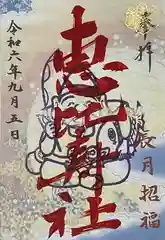 奉拝
恵比寿神社
辰月招福
令和六年九月五日